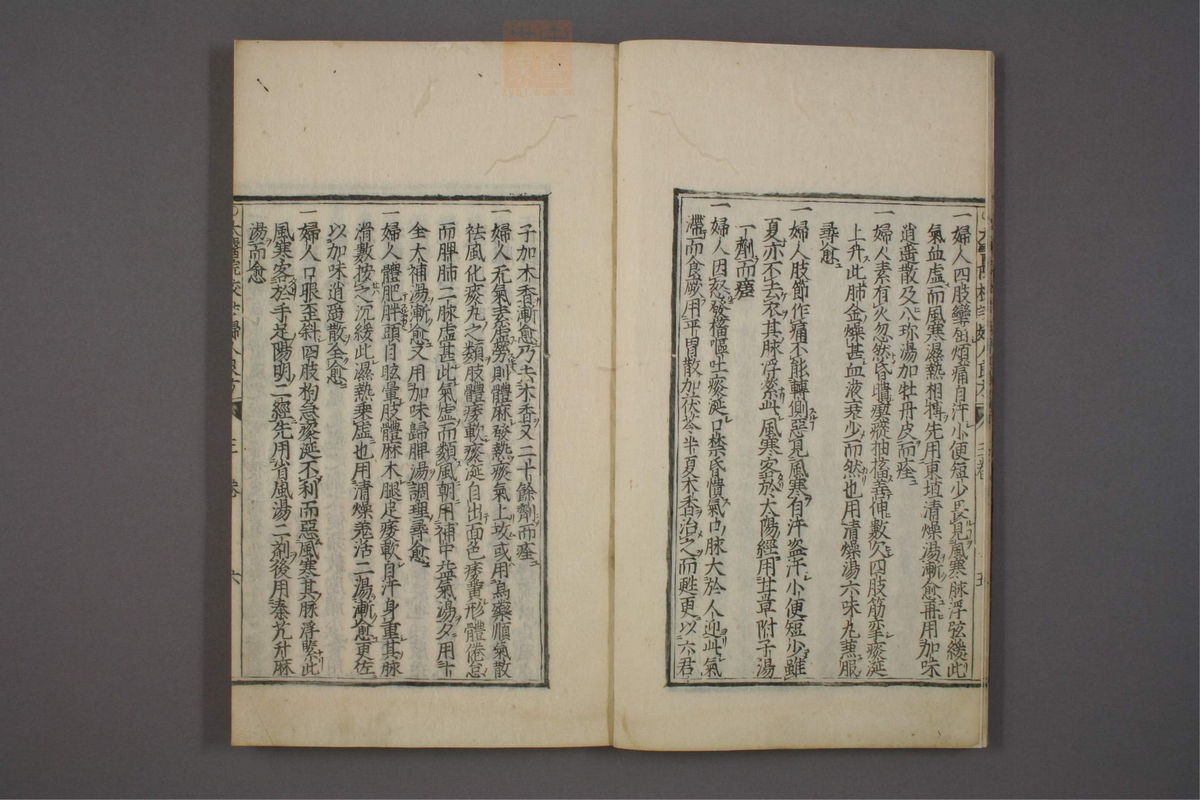 一婦人四肢攣屈煩痛自汗小便短少畏見風寒脉浮弦緩此
氣血虛而風寒濕熱相搏先用東垣清燥湯漸愈再用加味
逍遥散及八珎湯加牡丹皮而痊
一婦人素有火忽然昏憒瘈瘲抽搐善伸數欠四肢筋攣痰涎
上升此肺金燥甚血液衰少而然也用清燥湯六味丸兼服
尋愈
一婦人肢節作痛不能轉側惡見風寒自汗盗汗小便短少雖
夏亦不去衣其脉浮緊此風寒客於太陽經用甘草附子湯
一劑而瘥
一婦人因怒發搐嘔吐痰涎口禁昏憒氣口脉大於人迎此氣
滯而食厥用平胃散加茯苓半夏木香治之而甦更以六君
子加木香漸愈乃去木香又二十餘劑而痊
一婦人元氣素弱勞則體麻發熱痰氣上攻或用烏藥順氣散
祛風化痰丸之類肢體痿軟痰涎自出面色痿黄形體倦怠
而脾肺二脉虛甚此氣虛而類風朝用補中益氣湯夕用十
全大補湯漸愈又用加味歸脾湯調理尋愈
一婦人體肥胖頭目眩暈肢體麻木腿足痿軟自汗身重其脉
滑數按之沉緩此濕熱乗虛也用清燥羌活二湯漸愈更佐
以加味逍遥散全愈
一婦人口眼歪斜四肢拘急痰涎不利而惡風寒其脉浮緊此
風寒客於手足陽明二經先用省風湯二剤後用秦艽升麻
湯而愈
三卷 六